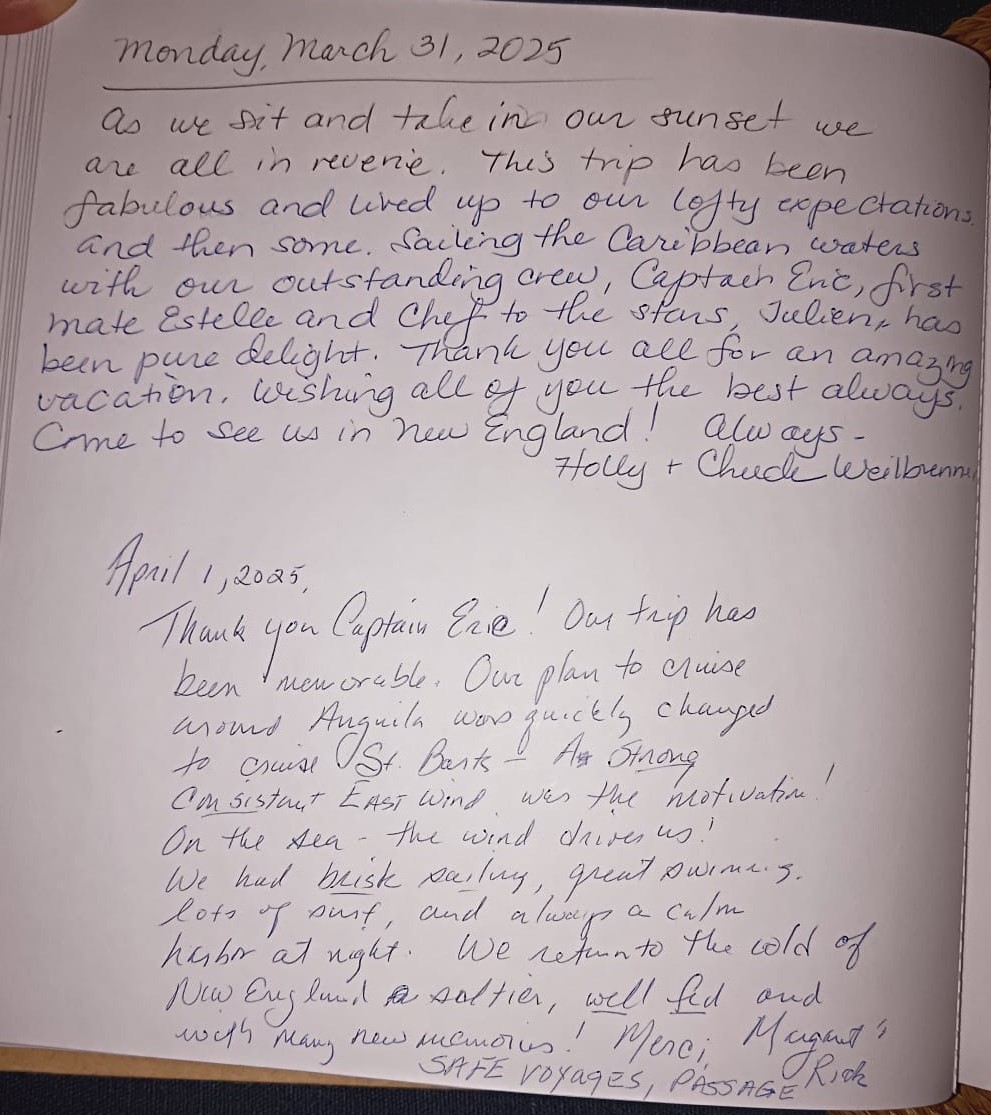 Monday, March 31, 2025
As we sit and take in our sunset we
are all in reverie. This trip has been
fabulous and lived up to our lofty expectations
and then some. Sailing the Caribbean waters
with our outstanding crew, Captain Eric, first
mate Estelle and Chef to the stars, Julien, has
been pure delight. Thank you all for an amazing
vacation. Wishing all of you the best always.
Come to see us in New England! Always -
Holly + Chuck
April 1, 2025,
Thank you Captain Eric! Our trip has
been memorable. Our plan to cruise
around Anguila was quickly changed
to cruise St. Barts - A Strong
Consistant EAST wind was the motivation!
On the sea - the wind drives us!
We had brisk sailing, great swimming.
lots of surf, and always a calm
harbor at night. We return to the cold of
New England saltier, well fed and
with many new memories! Merci, Margaret &
SAFE VOYAGES, PASSAGE Rick